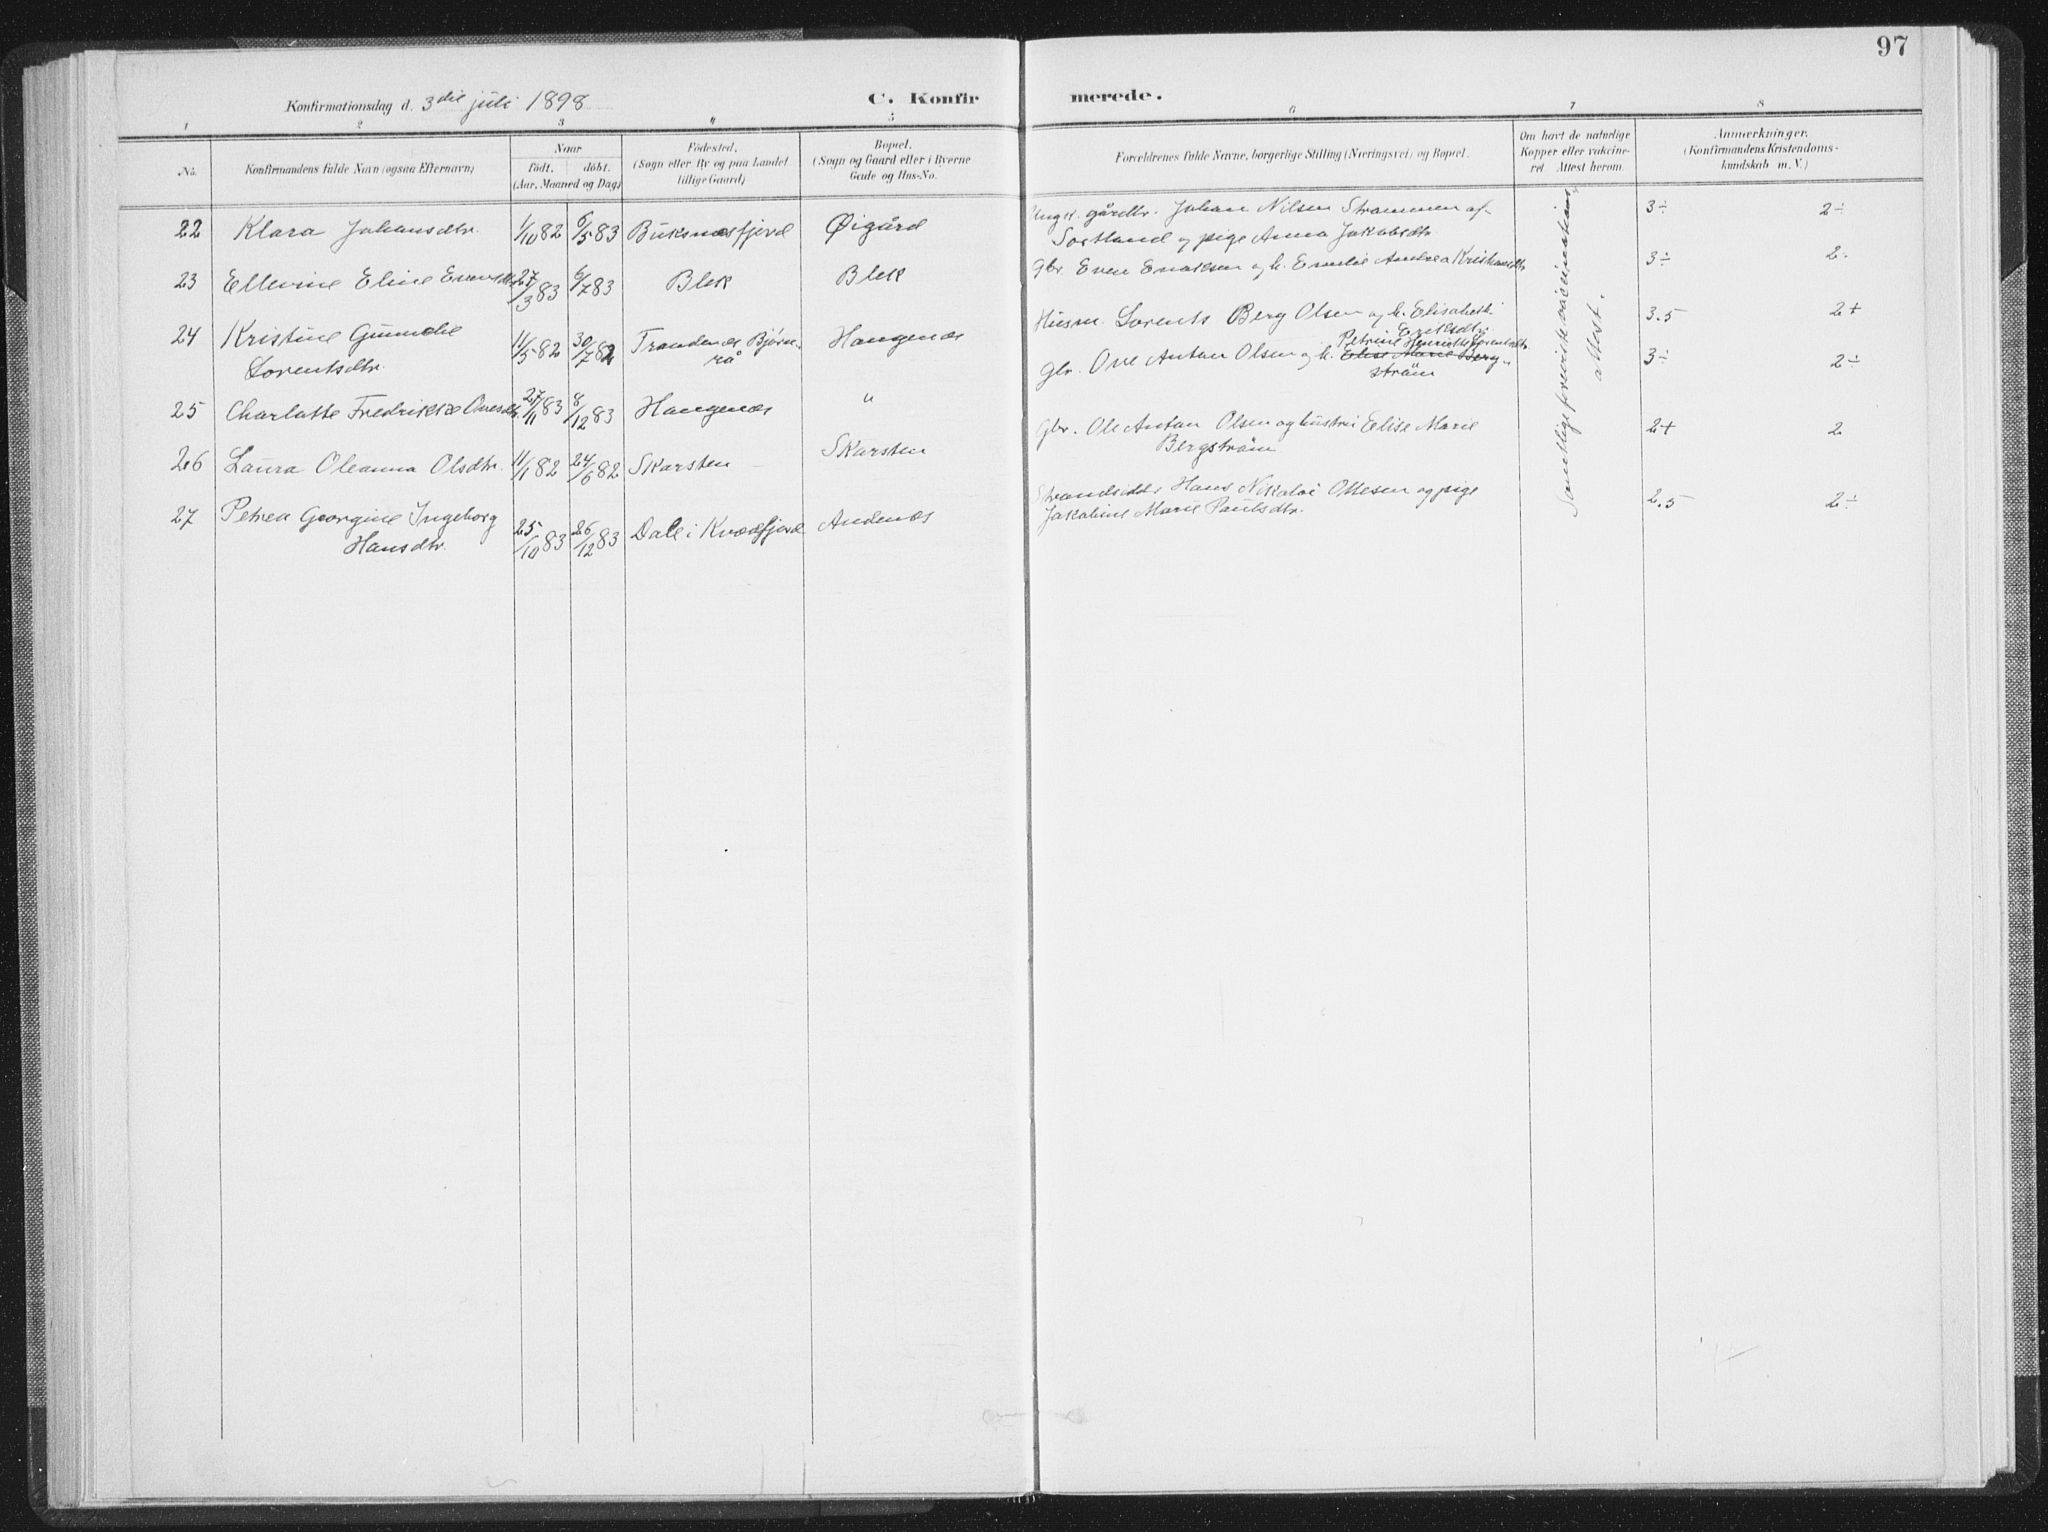 97
Konfirmationsdag d. 3die juli 1898 C. Konfirmerede.
1 2 3 4 5 6 7 8
No. Konfirmandens fulde Navn (ogsaa Efternavn)
Naar
født, døbt.
(Aar, Maaned og Dag)
Fødested,
(Sogn eller By og paa Landet
tillige Gaard)
Bopæl.
(Sogn og Gaard eller i Byerne
Gade og Hus-No.
Forældrenes fulde Navne, borgerlige Stilling (Næringsvei) og Bopæl.
Om havt de naturlige
Kopper eller vakcine-
ret Attest herom.
Anmærkninger.
(Konfirmandens Kristendoms-
kundskab m. V.)
22 Klara Johansdtr. 1/10 82 6/5 83 Buksnesfjord Øigård
Ungk. gårdbr. Johan Nilsen Strømmen af 3÷ 2÷
Sortland og pige Anna Jakobsdtr
23 Ellevine Eline Evensdtr 27/3 83 6/7 83 Blek Blek
Gbr. Even Enoksen og h. Emelie Andrea Kristiansdtr 3÷ 2.
24 Kristine Gunnelie 11/5 82 30/7 82 Trondenes Bjørn- Haugenes
Lorentsdtr. rå
Husm. Lorents Berg Olsen og h. Elisabeth 3.5 2+
Eriksdtr.
25 Charlotte Fredrikke Ovesdtr. 27/11 83 8/12 83 Haugenes "
Petrine Henriette Lorentsdtr
Gbr. Ove Anton Olsen og h. Elise Marie Berg- 3÷ 2÷
strøm
26 Laura Oleanna Olsdtr. 11/1 82 24/6 82 Skarsten Skarsten
Gbr. Ole Anton Olsen og hustru Elise Marie 2+ 2
Bergstrøm
27 Petrea Georgine Ingeborg 25/10 83 26/12 83 Dale i Kvædfjord Andenes
Hansdtr.
Strandsidder Hans Nikolai Ottesen og pige 2.5 2÷
Jakobine Marie Paulsdtr.
Samtlige foreviste vaccinations
attest.